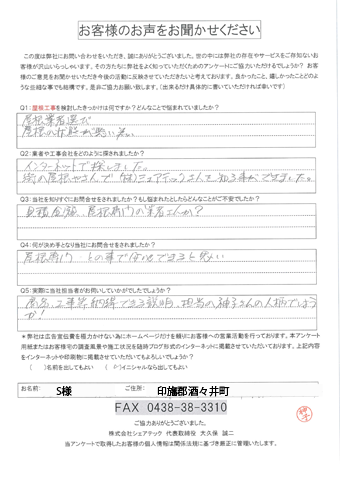 お客様のお声をお聞かせください
この度は弊社にお問い合わせをいただき、誠にありがとうございました。世の中には弊社の存在やサービスをご存知ないお
客様が沢山いらっしゃいます。その方たちに弊社をよく知っていただくためのアンケートにご協力いただけるでしょうか？お客
様のご意見をお聞かせいただき今後の活動に反映させていただきたいと考えております。良かったこと、嬉しかったことどのよ
うな些細な事でも結構です。是非ご協力お願い致します。（出来るだけ具体的に書いていただければ幸いです）
Q1：屋根工事を検討したきっかけは何ですか？どんなことで悩まれていましたか？
屋根業者選び
屋根の状態が悪い為。
Q2：業者や工事会社をどのように探されましたか？
インターネットで探しました。
街の屋根やさんで(株)シェアテックさんを知る事ができました。
Q3：当社を知りすぐにお問合せをされましたか？もし悩まれたとしたらどんなことがご不安でしたか？
見積金額、屋根専門の業者さんか？
Q4：何が決め手となり当社にお問合せをされましたか？
屋根専門との事で安心できると思い
Q5：実際に当社担当者がお伺いしていかがでしたでしょうか？
商品、工事等納得できる説明、担当の神子さんの人柄でしょう
か！
＊弊社は広告宣伝費を極力かけない為にホームページだけを頼りにお客様への営業活動を行っております。本アンケート
用紙またはお客様宅の調査風景や施工状況を随時ブログ形式のインターネットに掲載させていただいております。上記内容
をインターネットや印刷物に掲載させていただいてもよろしいでしょうか？
（　）名前を出してもよい　（○）イニシャルなら出してもよい
お名前：　S様　ご住所：　印旛郡酒々井町
FAX 0438-38-3310
ご協力ありがとうございました。
株式会社シェアテック 代表取締役 大久保 誠二
当アンケートで取得したお客様の個人情報は関係法規に基づき厳正に管理いたします。